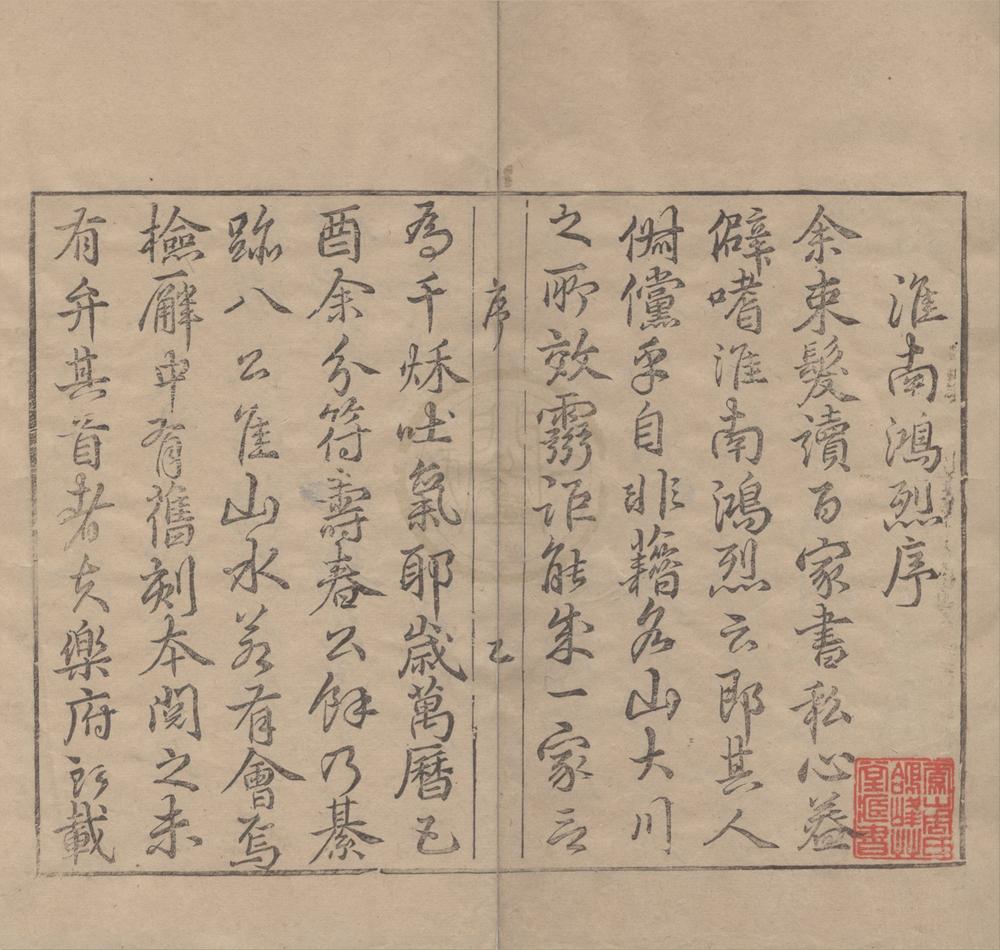 淮南鴻烈序
余束髮讀百家書私心益
僻嗜淮南鴻烈云即其人
倜儻乎自非藉名山大川
之所效靈詎能成一家言
序
乙
為千穌吐氣耶歲萬曆己
酉余分符壽春公餘乃綦
跡八公隹山水若有會焉
檢廨中有舊刻本閱之未
有弁其首者夫樂府所載